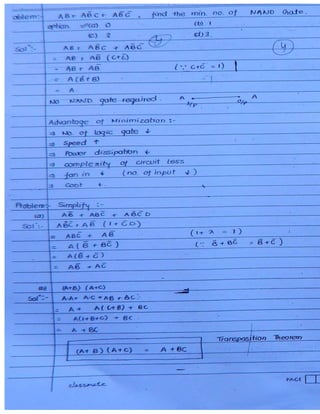 Problem:- AB + AB̄C + AB̄C̄ , find the min. no. of NAND Gate.
option (a) 0 (b) 1
(c) 2 (d) 3.
Sol":- AB + AB̄C + AB̄C̄
= AB + AB̄ (C+C̄)
= AB + AB̄ (∵ C+C̄ = 1)
= A (B+B̄)
= A
No NAND gate required. A I/P A O/P
Advantage of Minimization :-
⇒ No. of logic gate ↓
⇒ Speed ↑
⇒ Power dissipation ↓
⇒ complexity of circuit less
⇒ fan in ↓ (no. of input ↓)
⇒ Cost ↓.
Problem:- Simplify :-
(a) AB̄ + ABC̄ + AB̄CD
Sol":- ABC̄ + AB̄ (1 + CD)
= ABC̄ + AB̄ (1+ A = 1)
= A (B̄ + BC̄) (∵ B̄ + BC̄ = B̄ + C̄)
= A (B̄ + C̄)
= AB̄ + AC̄
(A+B) (A+C)
Sol":- A·A + A·C + AB + BC
= A + A(C+B) + BC
= A(1+B+C) + BC
= A + BC
Transposition Theorem
(A+B) (A+C) = A + BC
classmate
PAGE